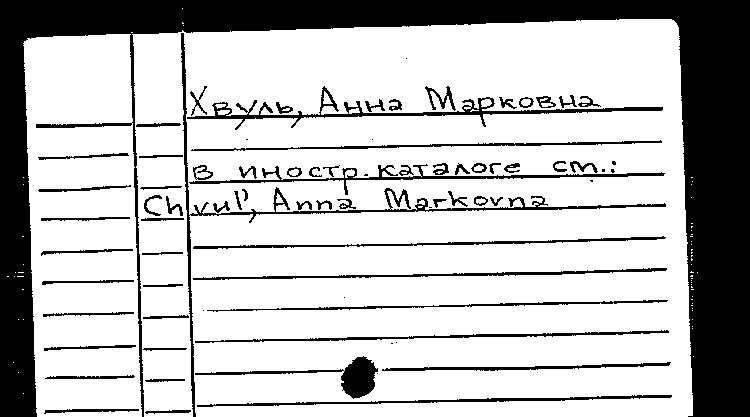 Хвуль, Анна Марковна
в иностр. каталоге см.:
Chvul', Anna Markovna